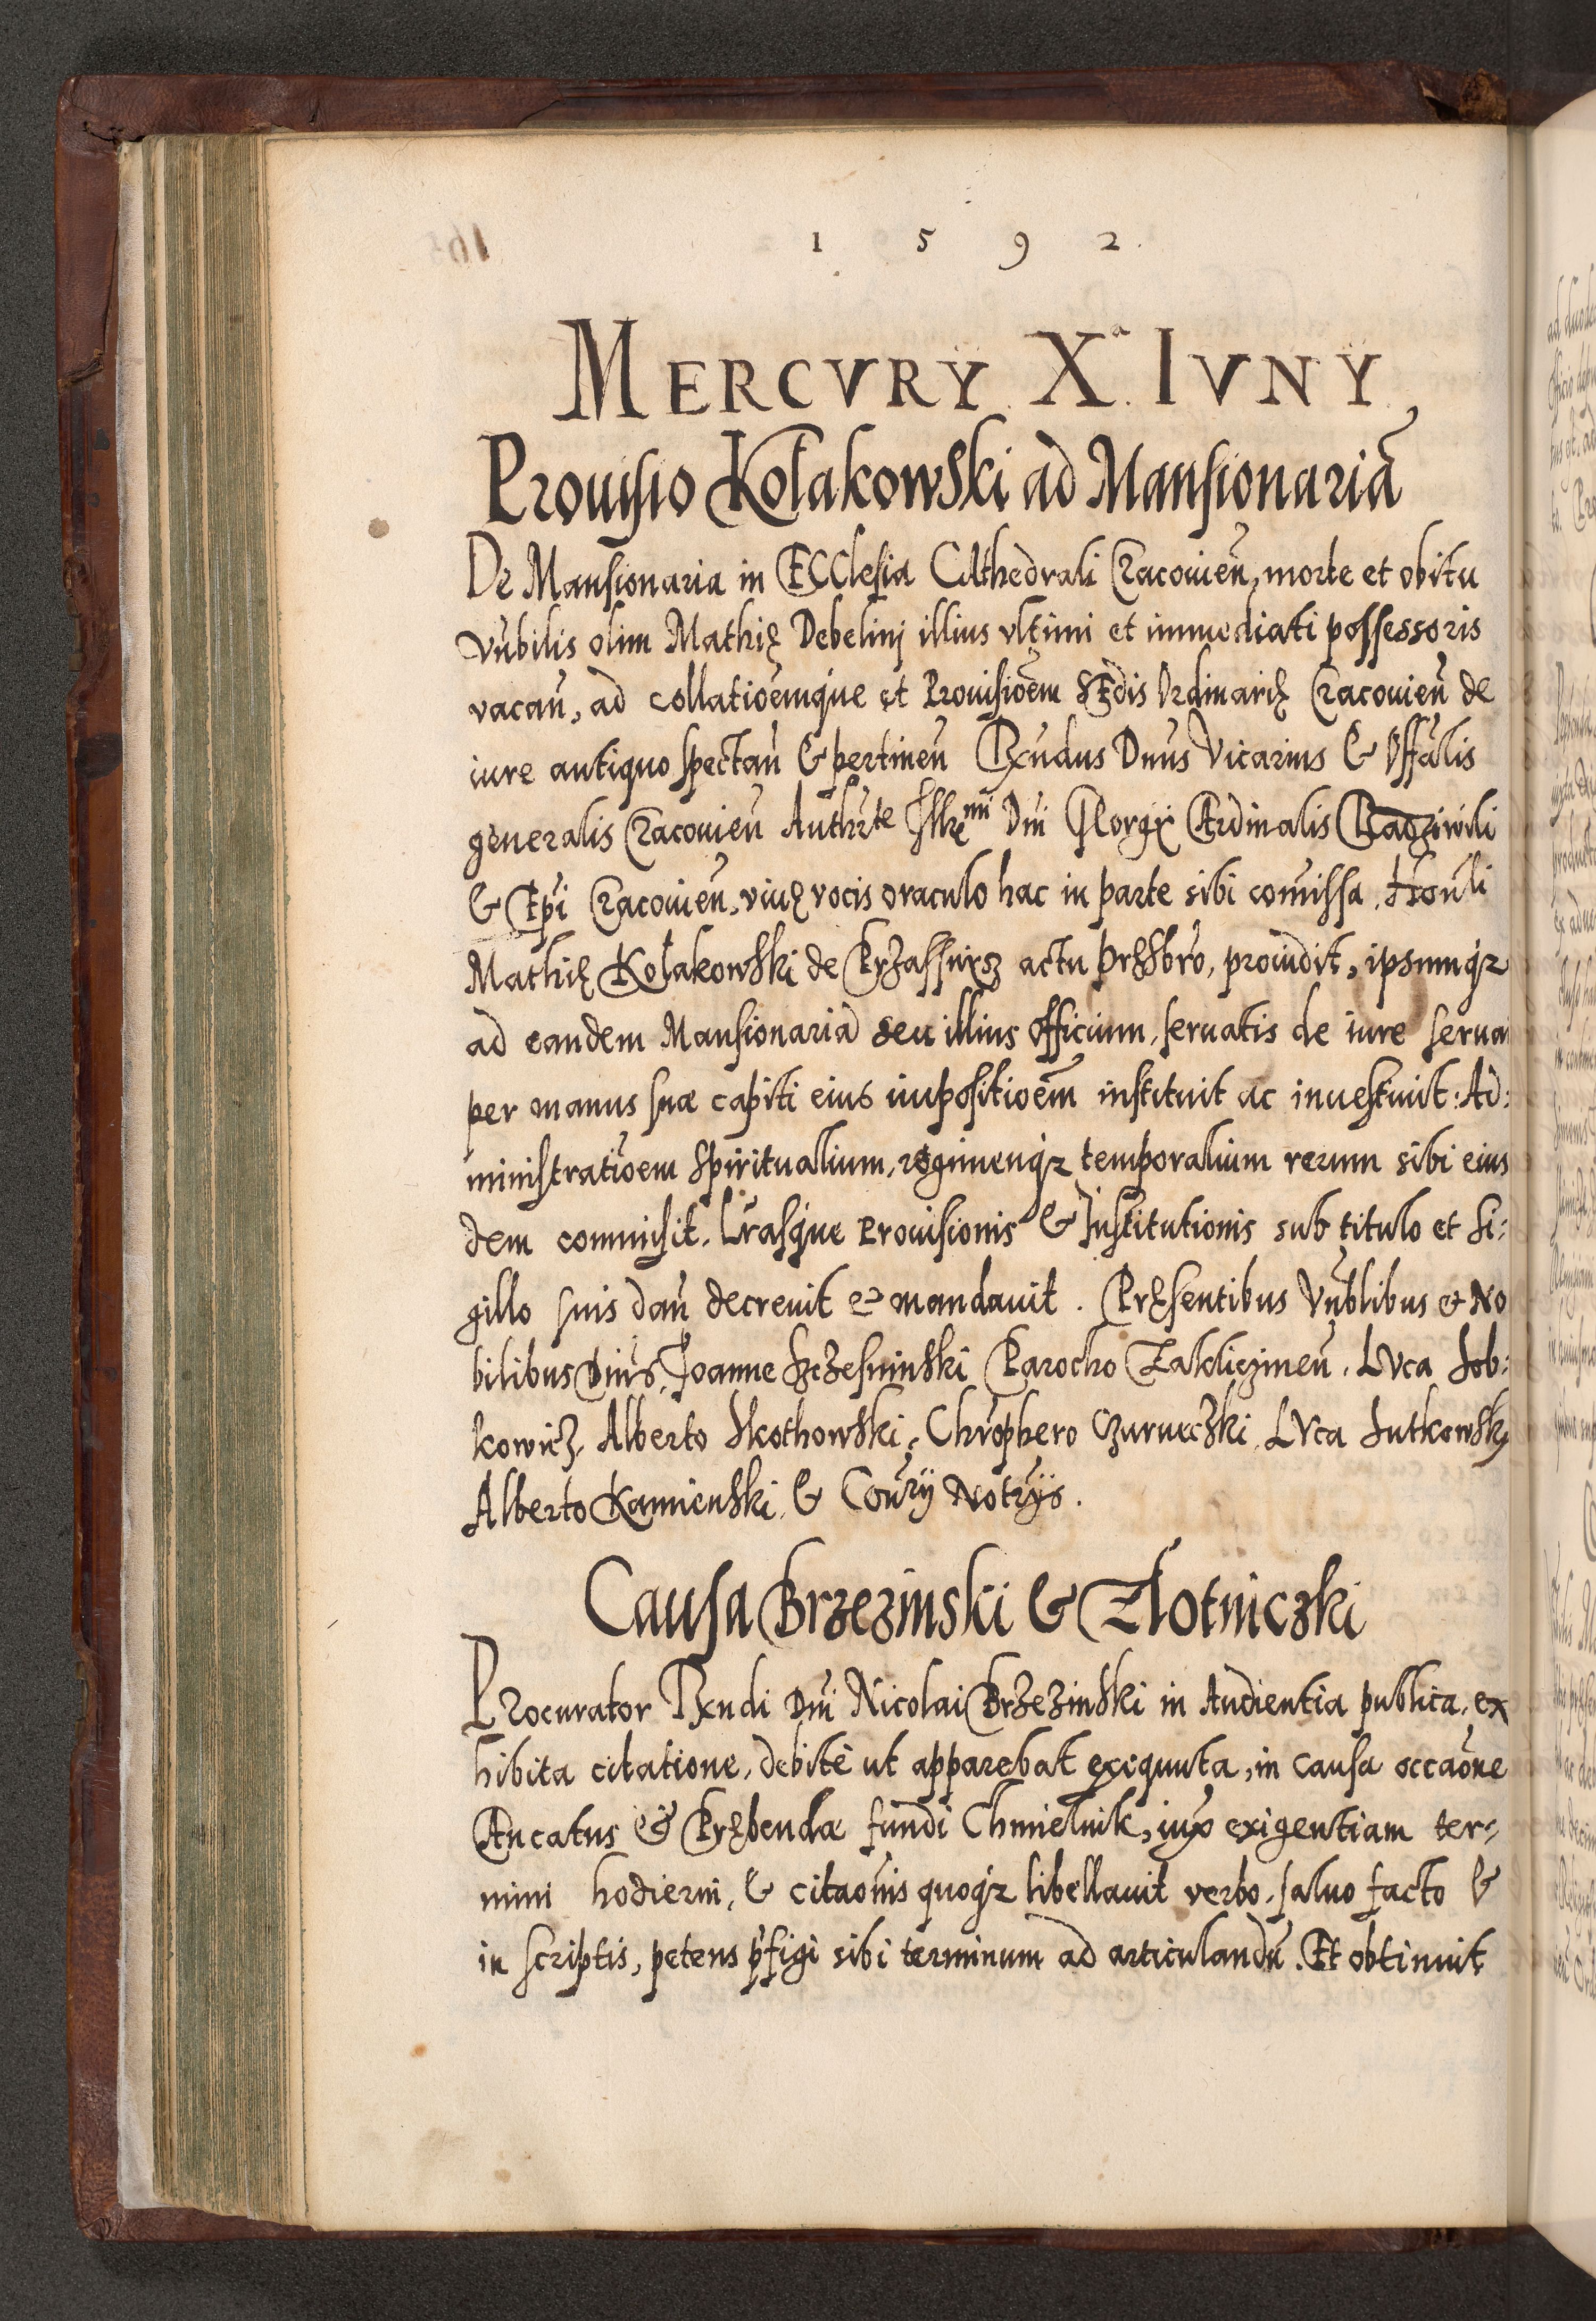 1 5 9 2.
MERCVRŸ Xª. IVNŸ
Prouisio Kołakowski ad Mansionariã
De Mansionaria in ECClesia CAthedrali Cracouień, morte et obitu
Vńbilis olim Mathię Debelinj illius vltimi et immediati possessoris
vacań, ad collatioẽmque et Prouisioẽm SEdis Ordinarię Cracouień de
iure antiquo spectań & pertineń Rx̃ndus Dnus Vicarius & Offalis
generalis Cracouień Authr̃te Illr̃mi Dñi GEorgij CArdinalis Radziwili
& Epĩ Cracouień, viuę vocis oraculo hac in parte sibi com̃issa. Hońli
Mathię Kołakowski de actu pręsbr̃o, prouidit, ipsumq̃z
ad eandem Mansionariã seu illius officium, seruatis de iure serua
per manus suæ capiti eius impositioẽm instituit ac inuestiuit: Ad:
ministratioẽm Spiritualium, regimenq̃z temporalium rerum sibi eius
dem commisit. Lr̃asque Prouisionis & Institutionis sub titulo et si:
gillo suis dań decreuit & mandauit. Pręsentibus Vńblibus & No
bilibus Dnis, Joanne Parocho. LVca Sob:
kowicz, Alberto Skothowski, Chr̃ophero LVca Sutkowsky
Alberto Kamienski, & Coñry Notr̃ijs.
Causa Brzezinski & Złotniczki
Procurator Rx̃ndi Dñi Nicolai Brzezinski in Audientia publica, ex
hibita citatione, debitè ut apparebat exequuta, in causa occaõne
Ancatus & Prębendæ fundi Chmielnik, iux̃ exigentiam ter-
mini hodierni, & citaõnis quoq̃z libellauit verbo, saluo facto &
in scriptis, petens p̃figi sibi terminum ad articulandũ. Et obtinuit